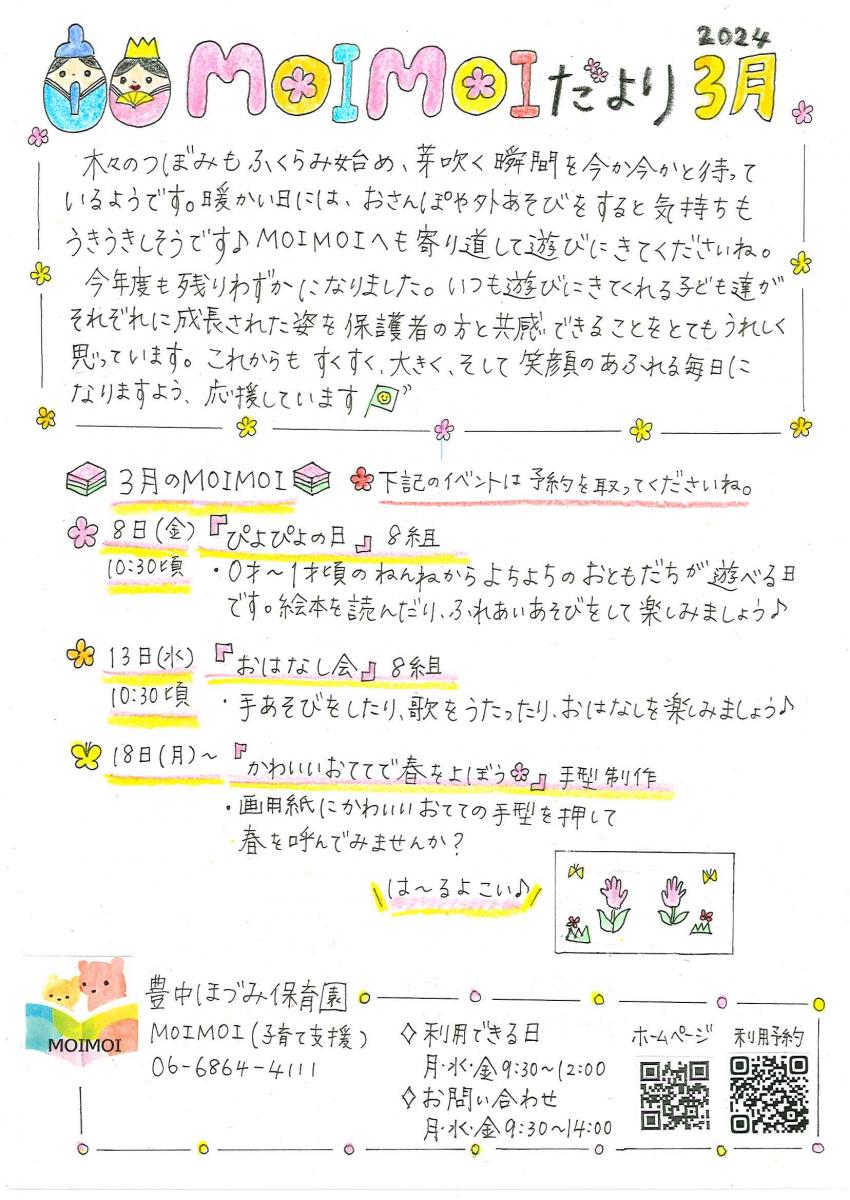 2024
MOIMOIだより 3月
木々のつぼみもふくらみ始め、芽吹く瞬間を今か今かと待って
いるようです。暖かい日には、おさんぽや外あそびをすると気持ちも
うきうきしそうです♪MOIMOIへも寄り道して遊びにきてくださいね。
今年度も残りわずかになりました。いつも遊びにきてくれる子ども達が
それぞれに成長された姿を保護者の方と共感できることをとてもうれしく
思っています。これからもすくすく、大きく、そして笑顔のあふれる毎日に
なりますよう、応援しています
3月のMOIMOI 下記のイベントは予約を取ってくださいね。
8日(金) 『ぴよぴよの日』 8組
10:30頃 ・0才〜1才頃のねんねからよちよちのおともだちが遊べる日
です。絵本を読んだり、ふれあいあそびをして楽しみましょう♪
13日(水) 『おはなし会』 8組
10:30頃 ・手あそびをしたり、歌をうたったり、おはなしを楽しみましょう♪
18日(月)〜 『かわいいおててで春をよぼう』 手型制作
・画用紙にかわいいおてての手型を押して
春を呼んでみませんか?
は〜るよこい♪
MOIMOI
豊中ほづみ保育園
MOIMOI(子育て支援)
06-6864-4111
◇利用できる日
月・水・金9:30〜12:00
◇お問い合わせ
月・水・金9:30〜14:00
ホームページ 利用予約